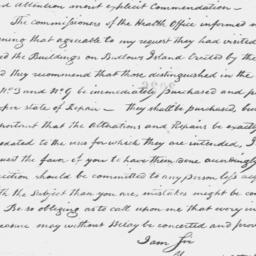 d attention most explicit Commendation —
The Commissioners of the Health Office informed
ning that agreable to my request they had visited
ed the Buildings on Bedlows Island Erected by the
d they recommend that those distinguished in the
No 3 and No 9 be immediately purchased and p
per state of Repair — they shall be purchased, bu
portant that the alterations and Repairs be exactly
odated to the uses for which they are intended, I
uest the favor of you to have them done accordingly
ection should be committed to any person less acq
th the Subject than you are, mistakes might be co
Be so obliging as to call upon me that every
easure may without delay be concerted and prov
I am Sir